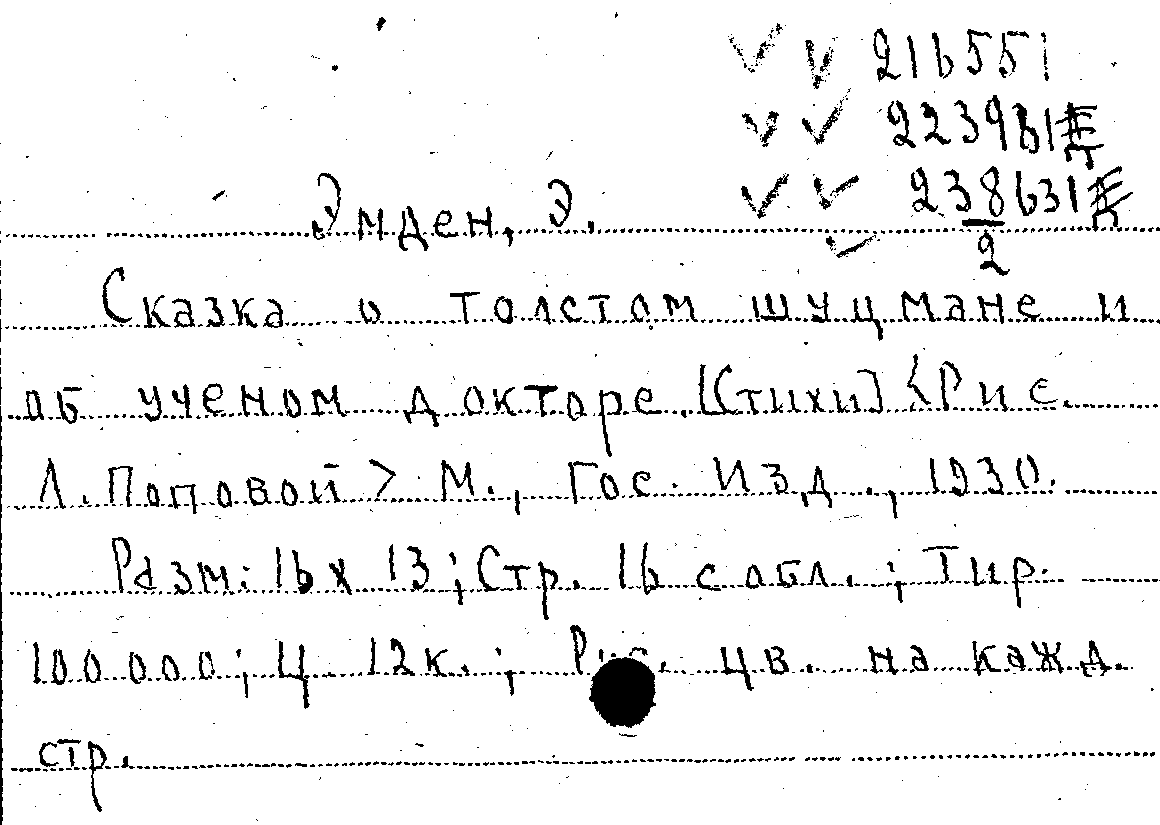 216551
223961
238631
2
Эмден, Э.
Сказка о толстом шуцмане и
об ученом докторе. [Стихи] <Рис.
Л. Поповой> М., Гос. Изд., 1930.
Разм: 16 х 13; Стр. 16 с обл.; Тир.
100000; Ц. 12к.; Рис. цв. на кажд.
стр.